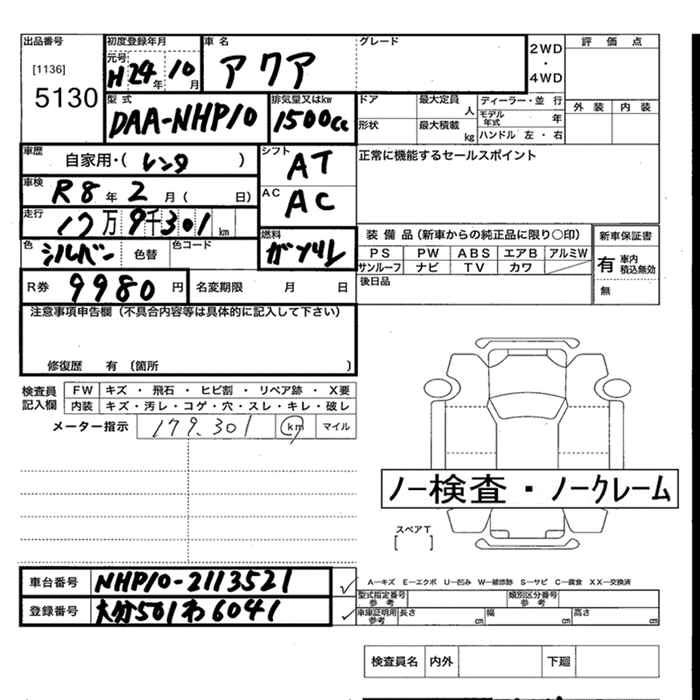 出品番号
[1136]
5130
初度登録年月
元号
H24年10月
車名
アクア
グレード
2WD
・
4WD
評価点
外装 内装
型式
DAA-NHP10
排気量又はkw
1500cc
ドア
形状
最大定員 人
最大積載 kg
ディーラー・並行
モデル年式 年
ハンドル 左・右
車歴
自家用・( レンタ )
シフト
AT
正常に機能するセールスポイント
車検
R8年2月( 日)
AC
AC
走行
17万9千301km
色
シルバー
色替
色コード
燃料
ガソリレ
装備品(新車からの純正品に限り○印)
PS PW ABS エアB アルミW
サンルーフ ナビ TV カワ
後日品
新車保証書
有 車内積込無効
無
R券
9980円
名変期限 月 日
注意事項申告欄(不具合内容等は具体的に記入して下さい)
修復歴 有〔箇所 〕
検査員記入欄
FW キズ・飛石・ヒビ割・リペア跡・X要
内装 キズ・汚レ・コゲ・穴・スレ・キレ・破レ
メーター指示
179.301
km マイル
ノー検査・ノークレーム
スペアT
[ ]
車台番号
NHP10-2113521
登録番号
大分501わ6041
A―キズ E―エクボ U―凹み W―補修跡 S―サビ C―腐食 XX―交換済
型式指定番号参考
類別区分番号参考
車庫証明用参考
長さ cm 幅 cm 高さ cm
検査員名 内外 下廻